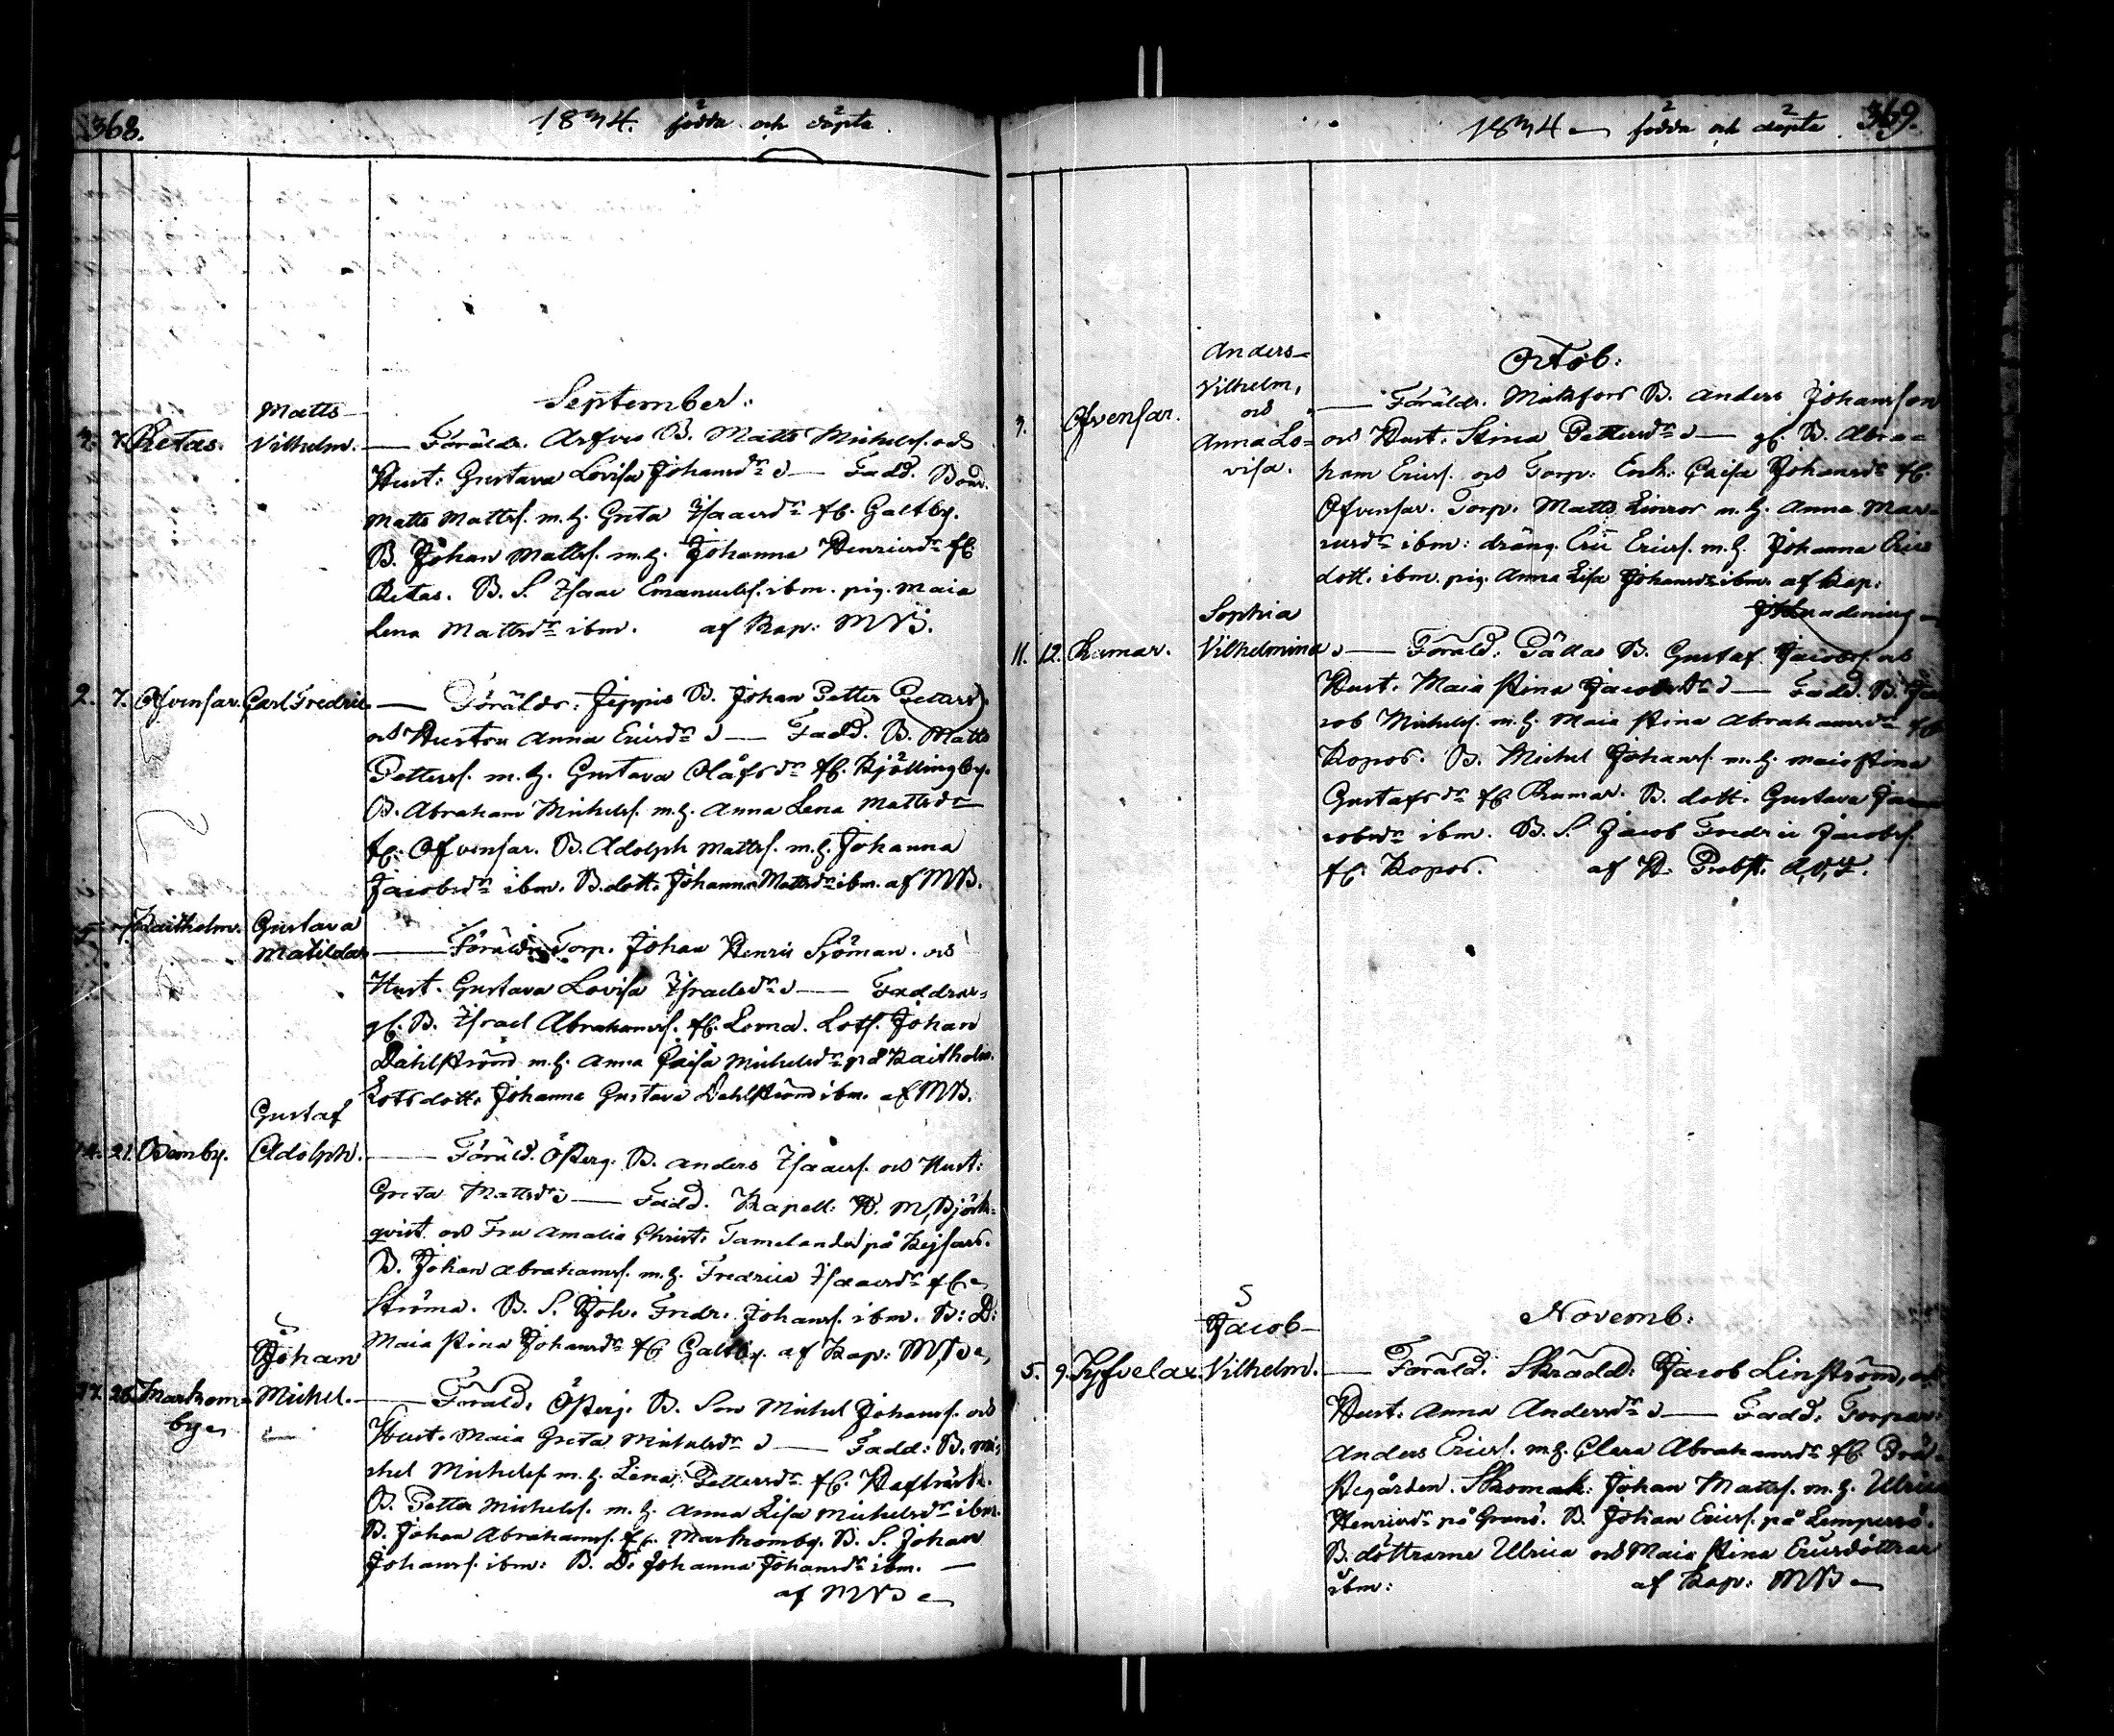 368.
1834. födda och döpta
September.
Matts
4. 7. Retas. Vilhelm. — Föräldr. Arfvis B. Matts Michelss. och
Hust: Gustava Lovisa Johansdr — Fadd. Bond.
Matts Mattss. m. h. Greta Isaacsdr fr. Galtby.
B. Johan Mattss. m. h. Johanna Henricsdr fr.
Retas. B. S. Isaac Emanuelss. ibm. pig. Maia
Lena Mattsdr ibm. af Kap: MB.
2. 7. Ofvensar. Carl Fredric. — Föräldr: Jeppis B. Johan Petter Petterss.
och Hustru Anna Ericsdr — Fadd. B. Matts
Petterss. m. h. Gustava Olåfsdr fr. Kjöllingby.
B. Abraham Michelss. m. h. Anna Lena Mattsdr
fr. Ofvensar. B. Adolph Mattss. m. h. Johanna
Jacobsdr ibm. B. dott. Johanna Mattsdr ibm. af MB.
Kaitholm. Gustava
Matilda — Föräldr. Torp. Johan Henric Sjöman. och
Hust. Gustava Lovisa Israelsdr — Faddrar
gl. B. Israel Abrahamss. fr. Lema. Lots. Johan
Dahlström m. h. Anna Caisa Michelsdr på Kaitholm.
Lotsdott. Johanna Gustava Dahlström ibm. af MB.
Gustaf
14. 21. Bemby. Adolph. — Föräld. Österg. B. Anders Isaacss. och Hust:
Greta Mattsdr — Fadd. Kapell: H. M. Björk-
qvist och Fru Amalia Christ. Tamelander på Kejsars.
B. Johan Abrahamss. m. h. Fredrica Isaacsdr fr.
Ströma. B. S. Joh. Fredr. Johanss. ibm. B: D:
Maia Stina Johansdr fr. Galtby. af Kap: MB
Johan
27. 28. Markom- Michel. — Föräld. Österg. B. Son Michel Johanss. och
by Hust. Maia Greta Michelsdr — Fadd: B. Mi-
chel Michelss. m. h. Lena Pettersdr fr. Hafträsk.
B. Petter Michelss. m. h. Anna Lisa Michelsdr ibm.
B. Johan Abrahamss. fr. Markomby. B. S. Johan
Johanss. ibm: B. D. Johanna Johansdr ibm. —
af MB
1834 födda och döpta 369.
Octob:
Anders
Vilhelm,
och
Anna Lo-
visa.
Ofvensar. — Föräldr. Matsfors B. Anders Johansson
och Hust. Stina Pettersdr — gl. B. Abra-
ham Ericss. och Torp: Enk: Caisa Johansdr fr.
Ofvensar. Torp. Matts m. h. Anna Mar-
cusdr ibm: dräng. Eric Ericss. m. h. Johanna Erics
dott. ibm. pig. Anna Lisa Johansdr ibm. af Kap:
Sophia
11. 12. Rumar. Vilhelmina — Föräld: Pällas B. Gustaf Jacobss. och
Hust. Maia Stina Jacobsdr — Fadd. B. Ja-
cob Michelss. m. h. Maia Stina Abrahamsdr fr.
Kopos. B. Michel Johanss. m. h. Maia Stina
Gustafsdr fr. Rumar. B. dott. Gustava Ja-
cobsdr ibm. B. S. Jacob Fredric Jacobss.
fr. Kopos. af H. Probst.
Novemb:
Jacob
5. 9. Tyfvelax. Vilhelm. — Föräld. Skrädd: Jacob Linström, och
Hust: Anna Andersdr — Fadd: Torpar.
Anders Ericss. m. h. Clara Abrahamsdr fr. Prä-
stegården. Skomak: Johan Mattss. m. h. Ulrica
Henricsdr på Granö. B. Johan Ericss. på Lempersö.
B. döttrarne Ulrica och Maia Stina Ericsdöttrar
ibm: af Kap: MB